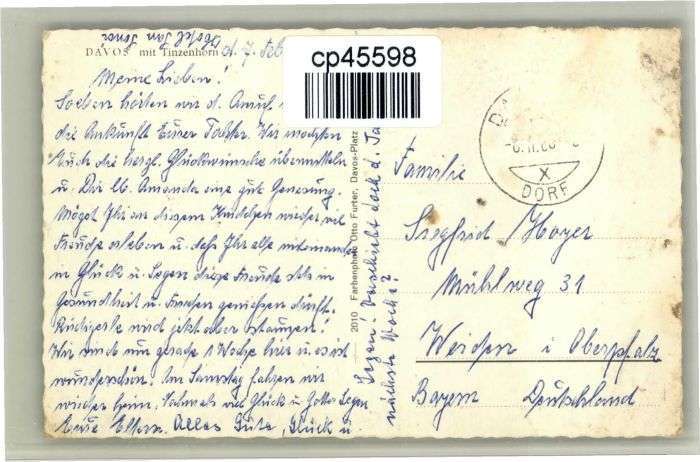 DAVOS mit Tinzenhorn
d. 7. Feb
cp45598
Meine Lieben!
Soeben hörten wir d. Anruf
die Ankunft Eurer Tochter. Wir möchten
Euch die herzl. Glückwünsche übermitteln
u. Dir lb. Amanda eine gute Genesung.
Möget Ihr an diesem Kindchen wieder viel
Freude erleben u. daß Ihr alle miteinander
in Glück u. Segen diese Freude stets in
Gesundheit u. Frieden genießen dürft.
wird jetzt aber staunen!
Wir sind nun gerade 1 Woche hier u. es ist
wunderschön. Am Samstag fahren wir
wieder heim. Nochmals viel Glück u. Gottes Segen
Eure Eltern. Alles Gute, Glück u
Segen!
nächste Woche?
2010 Farbenphoto Otto Furter, Davos-Platz
DORF
Familie
Siegfried Hoyer
Mühlweg 31
Weiden i Oberpfalz
Bayern Deutschland